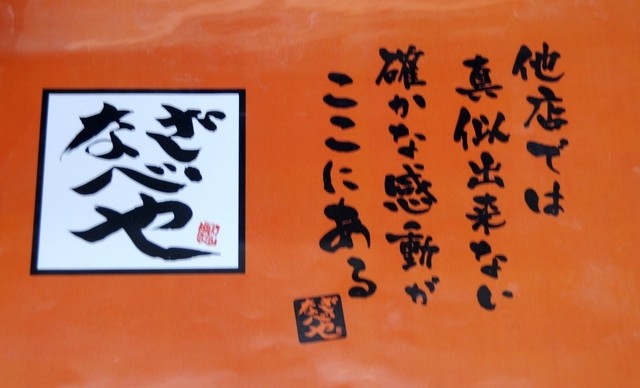 他店では
真似出来ない
確かな感動が
ここにある
ざしい
なべや